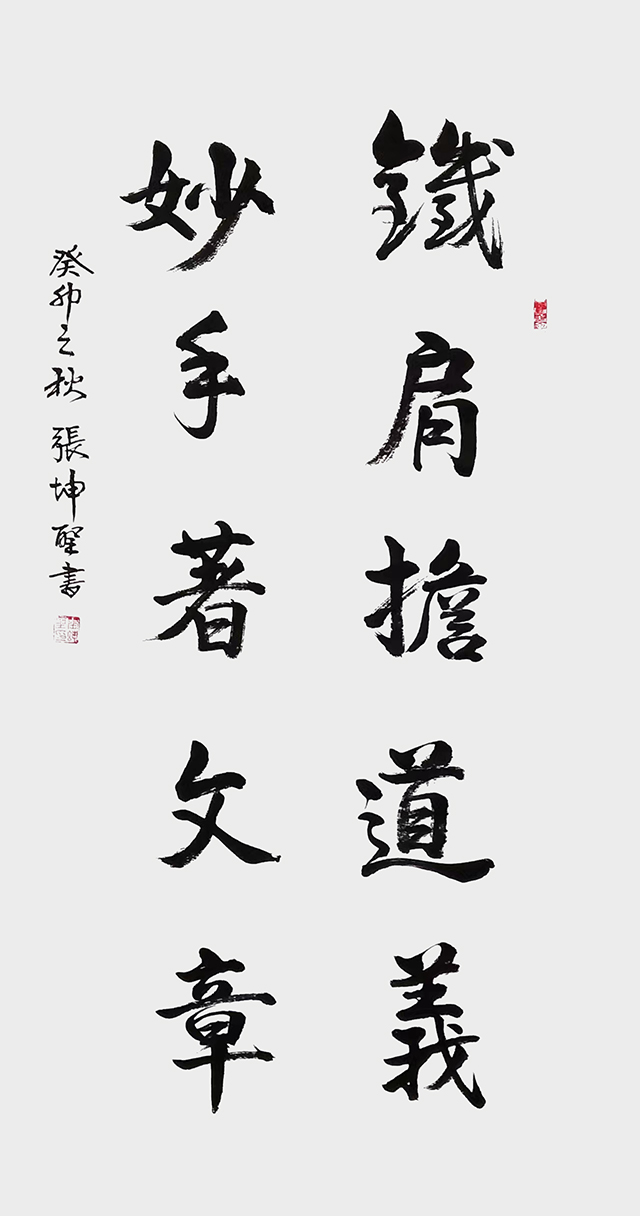 鐵肩擔道義
妙手著文章
癸卯之秋 張坤聖書